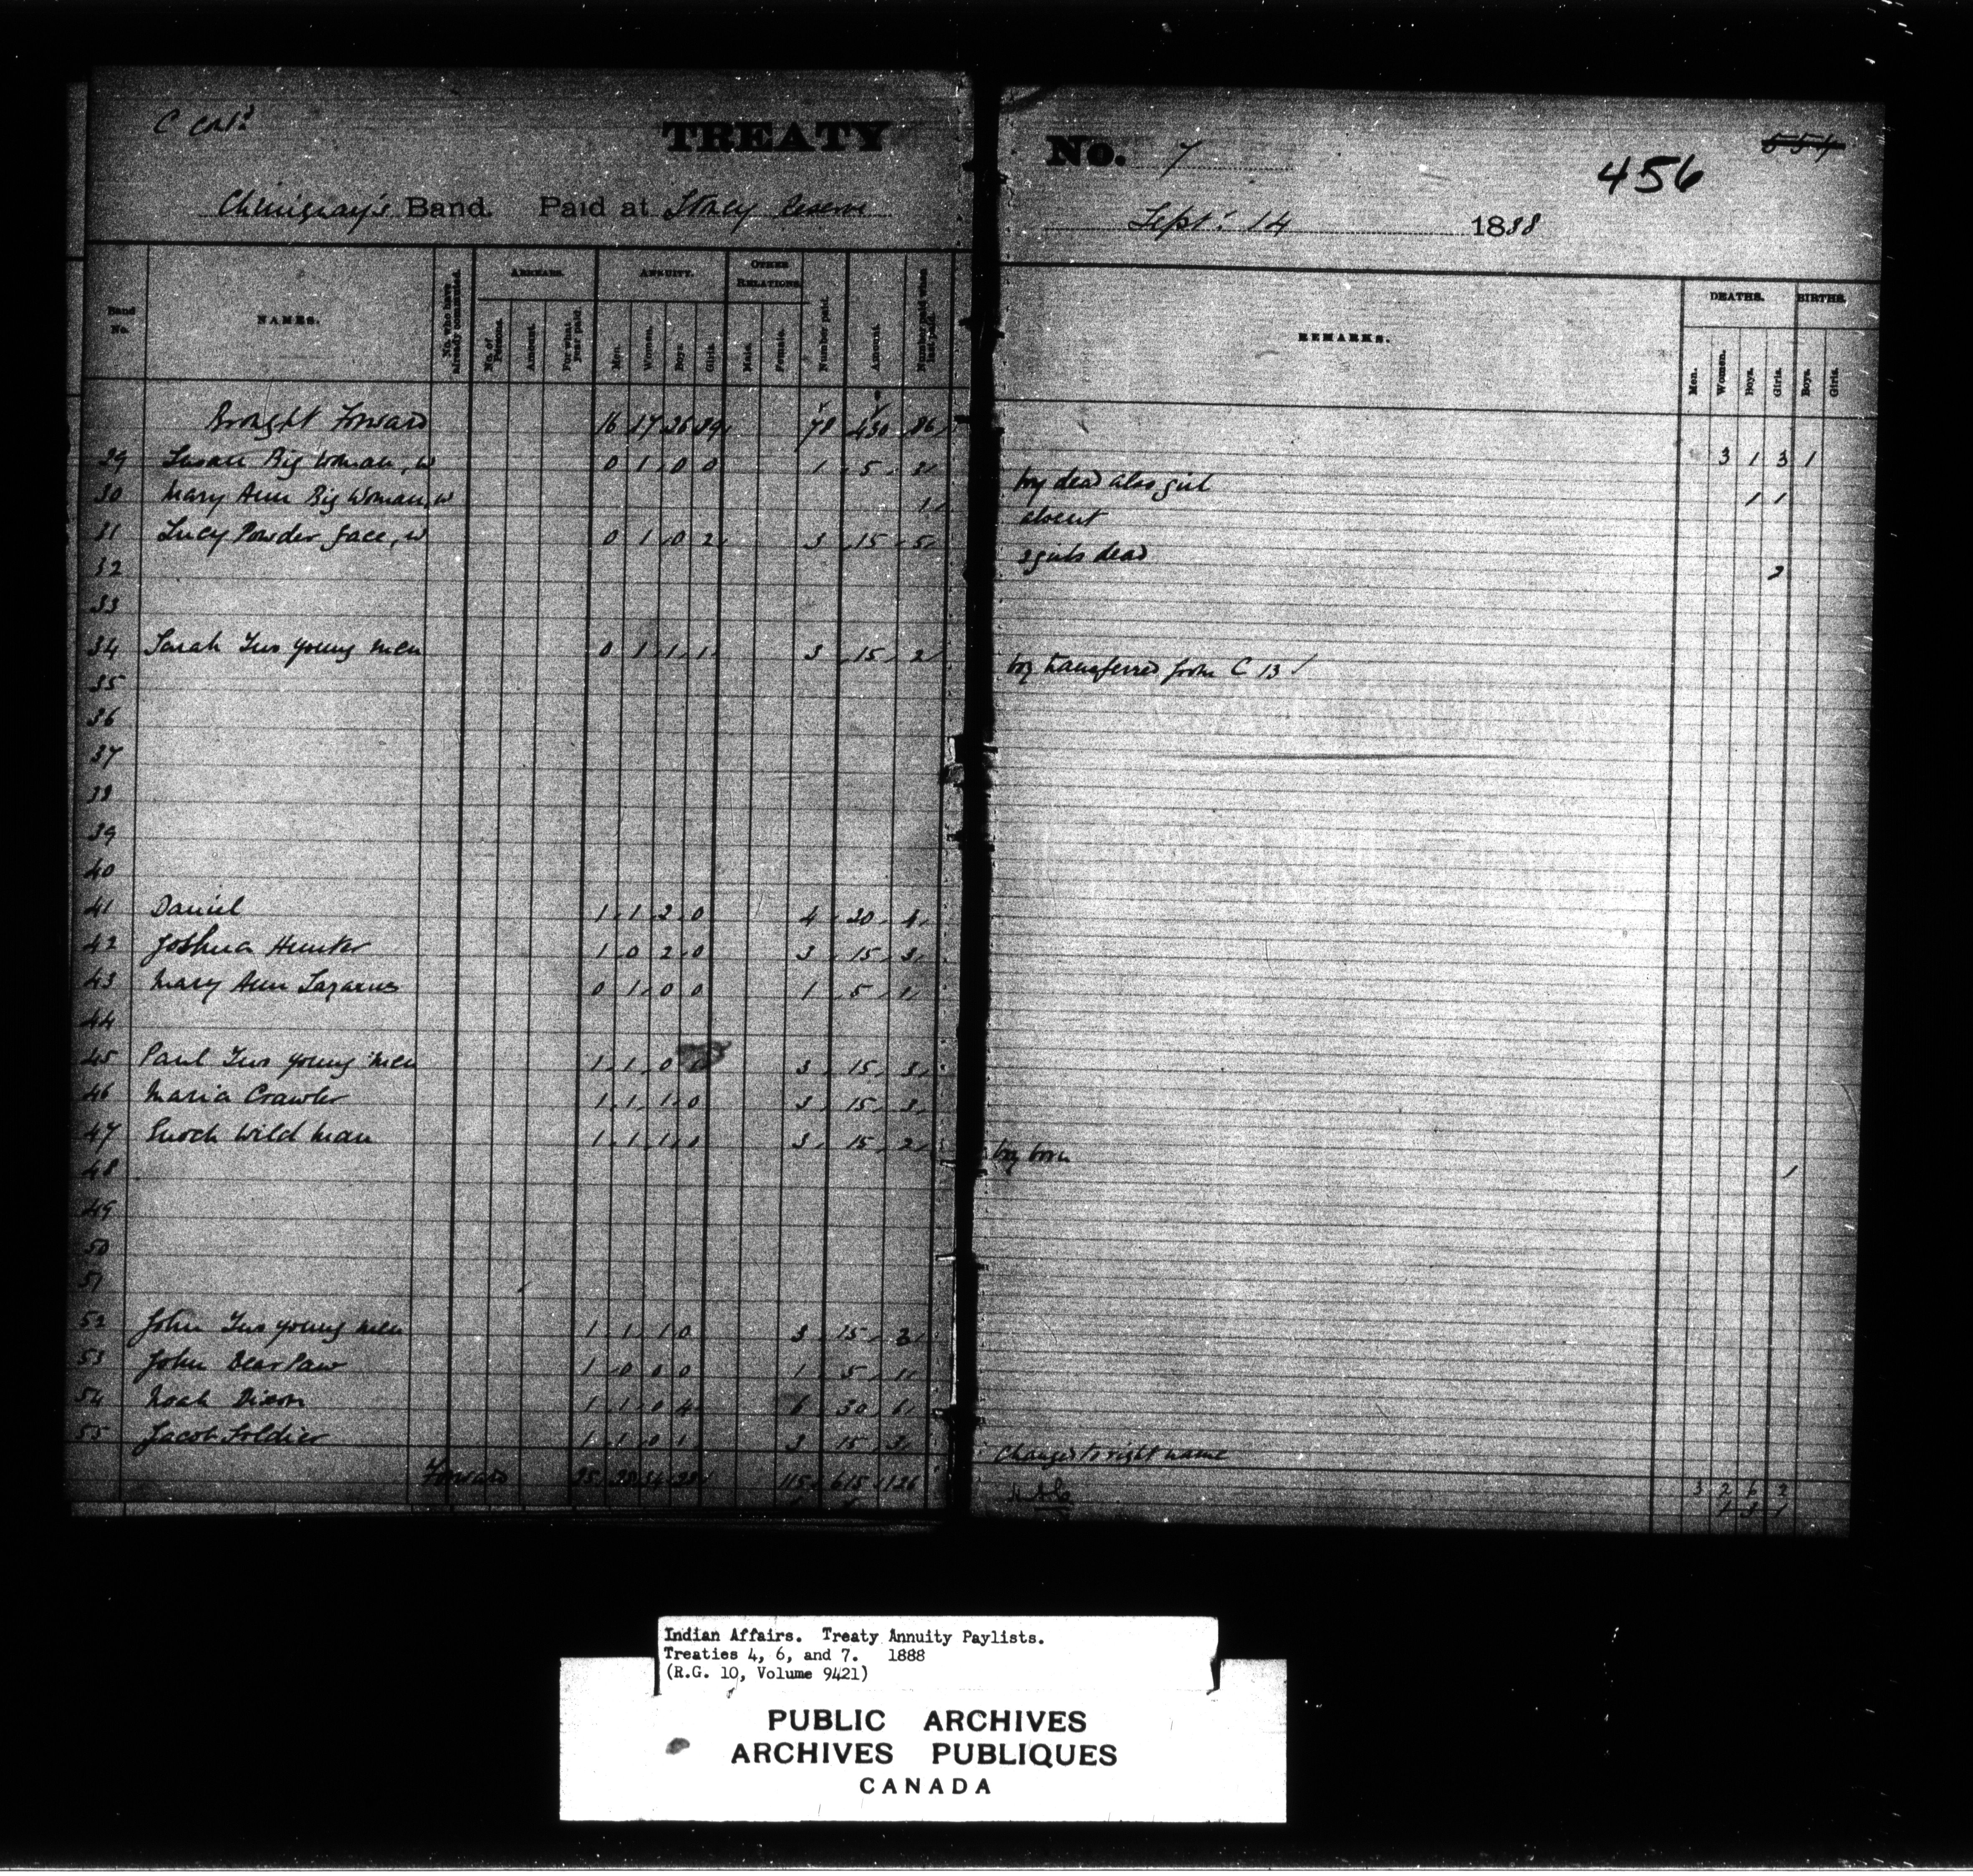 C cont'd
TREATY No. 7
456
554
Chiniquay's Band. Paid at Stoney Reserve Sept. 14 1888
Band No. NAMES. No. who have already commuted. ARREARS. No. of Persons. Amount. For what year paid. ANNUITY. Men. Women. Boys. Girls. OTHER RELATIONS. Male. Female. Number paid. Amount. Number paid when last paid. REMARKS. DEATHS. Men. Women. Boys. Girls. BIRTHS. Boys. Girls.
Brought Forward 16 17 26 78 430 86 3 1 3 1
29 Susan Big Woman, w 0 1 0 0 1 5 2 boy dead also girl 1 1
30 Mary Ann Big Woman, w 1 absent
31 Lucy Powder face, w 0 1 0 2 3 15 5 2 girls dead 2
32
33
34 Sarah Two young men 0 1 1 1 3 15 2 boy transferred from C 13
35
36
37
38
39
40
41 Daniel 1 1 2 0 4 20 4
42 Joshua Hunter 1 0 2 0 3 15 3
43 Mary Ann Lazarus 0 1 0 0 1 5 1
44
45 Paul Two young men 1 1 0 3 15 3
46 Maria Crawler 1 1 1 0 3 15 3
47 Enoch Wild man 1 1 1 0 3 15 2 boy born 1
48
49
50
51
52 John Two young men 1 1 1 0 3 15 3
53 John Bear Paw 1 0 0 0 1 5 1
54 Noah Dixon 1 1 0 4 6 30 6
55 Jacob Soldier 1 1 0 1 3 15 3 Changed to right name
Forward 25 115 615 126 3 2 6 2
1 3 1
Indian Affairs. Treaty Annuity Paylists.
Treaties 4, 6, and 7. 1888
(R.G. 10, Volume 9421)
PUBLIC ARCHIVES
ARCHIVES PUBLIQUES
CANADA